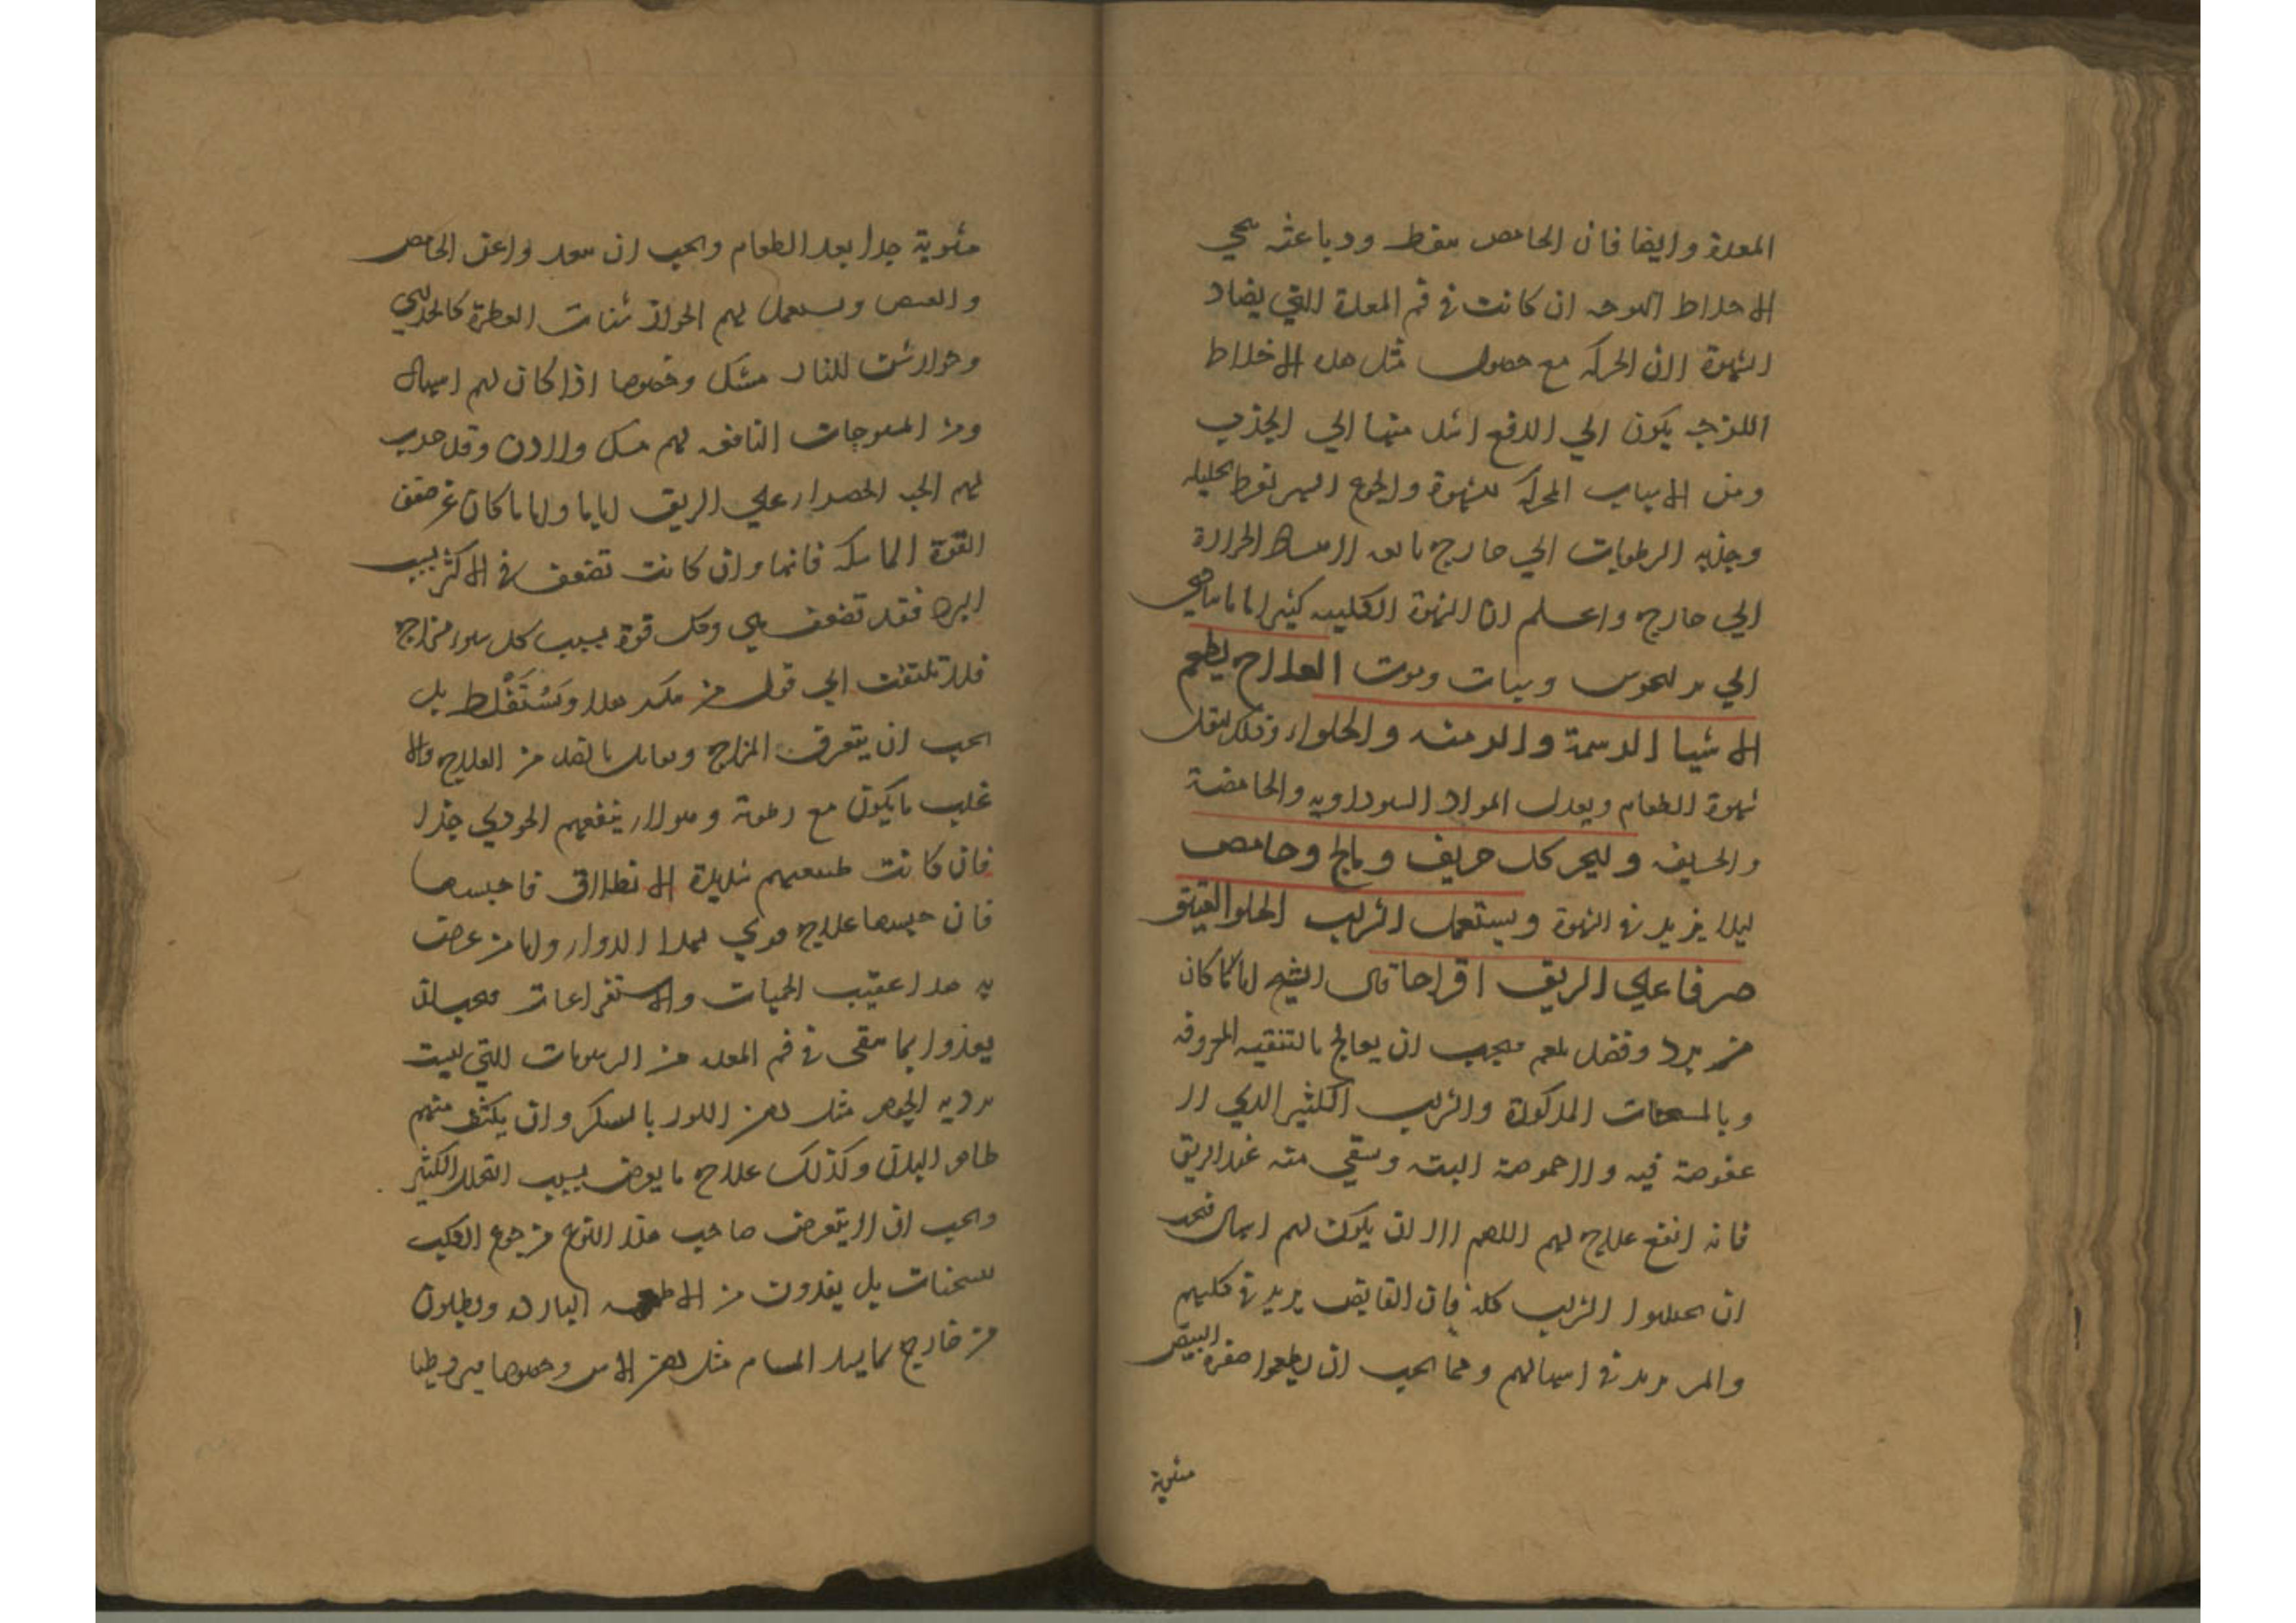 المعدة وايضا فان الحامض مقطع ودباغته ينحي
الاخلاط اللزجه ان كانت في فم المعدة التي يضاد
الشهوة لان الحركه مع حصول مثل هده الاخلاط
اللزجه يكون الي الدفع اشد منها الي الجذب
ومن الاسباب المحركه للشهوة والجوع السهر لفرط تحليله
وجذبه الرطوبات الي خارج الحرارة
الي خارج واعلم ان الشهوة الكلبيه كثيرا ما يتادي
الي وسبات وموت العلاج يطعم
الاشيا الدسمة والدهنه والحلواء وذلك ليقل
شهوة الطعام ويعدل المواد السوداويه والحامضة
والحريفه وليحذر كل حريف ومالح وحامض
ليلا يزيد في الشهوة ويستعمل الشراب الحلو العتيق
صرفا علي الريق اقداحا قال الشيخ اما ما كان
من برد وفضل بلغم فيجب ان يعالج بالتنقيه المعروفه
وبالمسخنات المذكورة والشراب الكثير الدي لا
عفوصة فيه ولا حموضة البته وسقي منه عند الريق
فانه انفع علاج لهم اللهم الا ان يكون لهم اسهال فيجب
ان الشراب كله فان القابض يزيد في كلبهم
والمر يزيد في اسهالهم ومما يجب ان يطعموا صفرة البيض
مشوية
مشوية جدا بعد الطعام ويجب ان يبعدوا عن الحامض
والعفص ويستعمل لهم الجوارشنات العطرة كالجوزي
وجوارشن النار مشك وخصوصا اذا كان لهم اسهال
ومن النافعه لهم مسك ولادن وقد جرب
لهم الحب الخضرا علي الريق اياما واما ما كان عن ضعف
القوة الماسكه فانها وان كانت تضعف في الاكثر بسبب
البرد فقد تضعف هي وكل قوة بسبب كل سوء مزاج
فلا تلتفت الي قول من ينكر هدا ويستغلط بل
يجب ان يتعرف المزاج ويقابل بالضد من العلاج والا
غلب ما يكون مع رطوبة وهولاء ينفعهم الجوزي جدا
فان كانت طبيعتهم شديدة الانطلاق فاحبسها
فان حبسها علاج قوي لهدا الدواء واما من عرض
به هدا عقيب الحميات والاستفراغات فيجب ان
يغذوا بما يبقي في فم المعده من الرطوبات التي ليست
برديه الجوهر مثل دهن اللوز بالسكر وان يكثف منهم
ظاهر البدن وكذلك علاج ما يعرض بسبب التحلل الكثير
ويجب ان لا يتعرض صاحب هذا النوع من جوع الكلب
للسخنات بل يغذون من الاطعمه البارده ويطلون
من خارج بما يسد المسام مثل دهن الاس وخصوصا قيروطيا